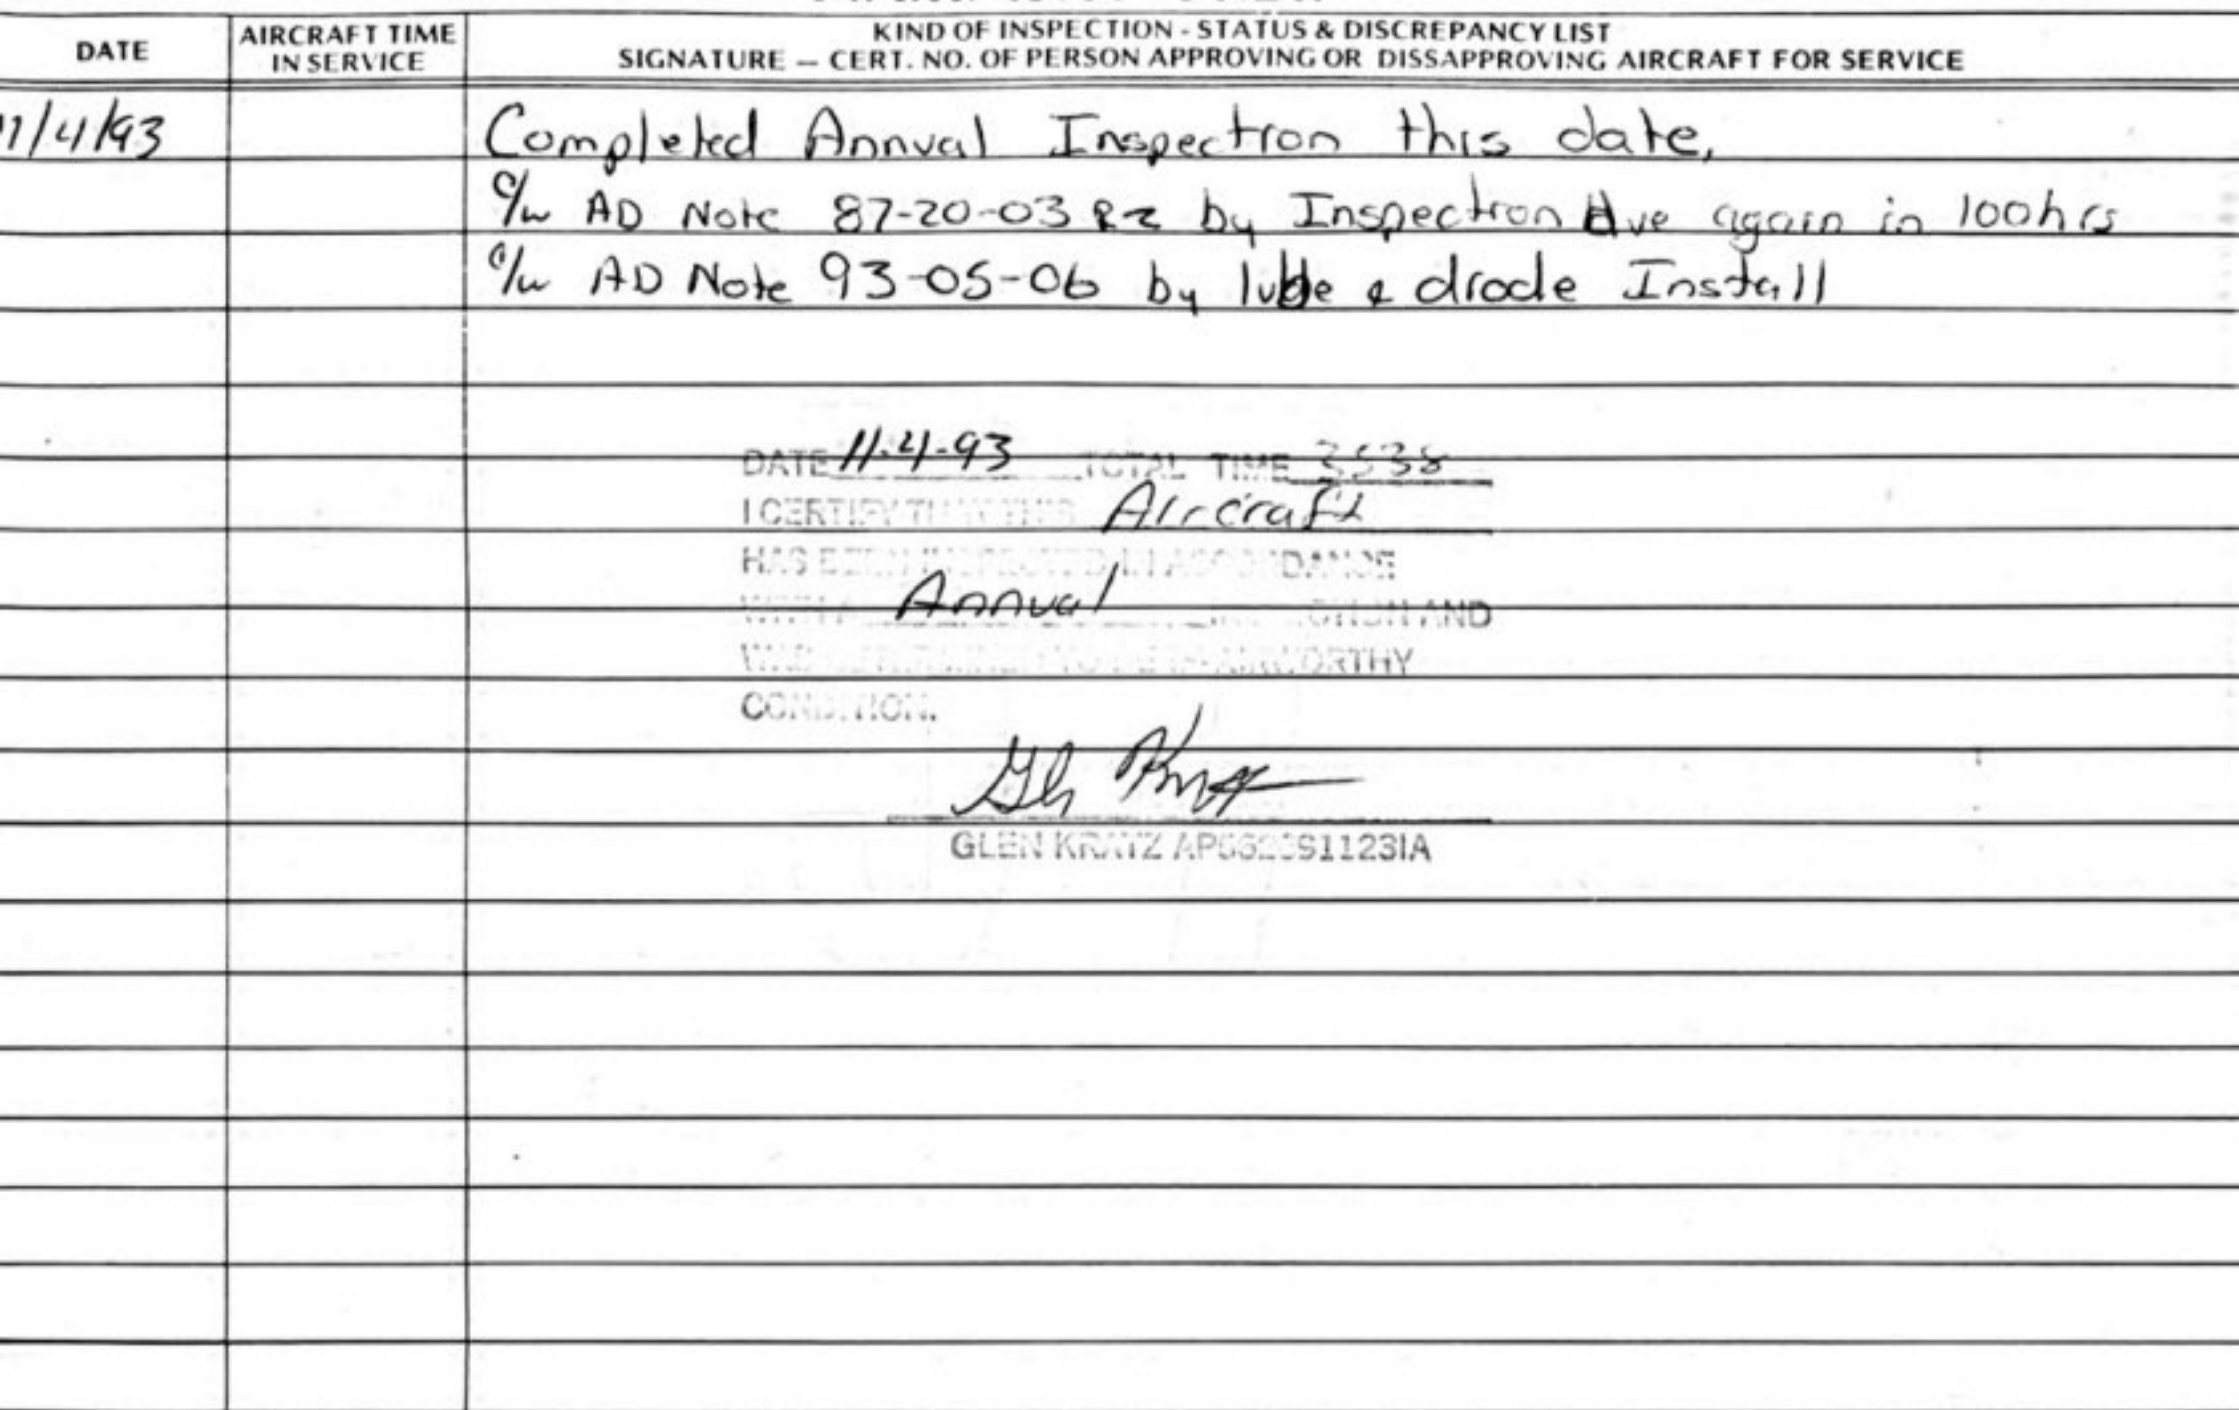 DATE
AIRCRAFT TIME
IN SERVICE
KIND OF INSPECTION - STATUS & DISCREPANCY LIST
SIGNATURE — CERT. NO. OF PERSON APPROVING OR DISSAPPROVING AIRCRAFT FOR SERVICE
11/4/93 Completed Annual Inspection this date,
c/w AD Note 87-20-03 R2 by Inspection due again in 100hrs
c/w AD Note 93-05-06 by lube & diode Install
DATE 11-4-93 TOTAL TIME 3538
I CERTIFY THAT THIS Aircraft
HAS BEEN INSPECTED IN ACCORDANCE
WITH A Annual INSPECTION AND
WAS DETERMINED TO BE IN AIRWORTHY
CONDITION.
GLEN KRATZ